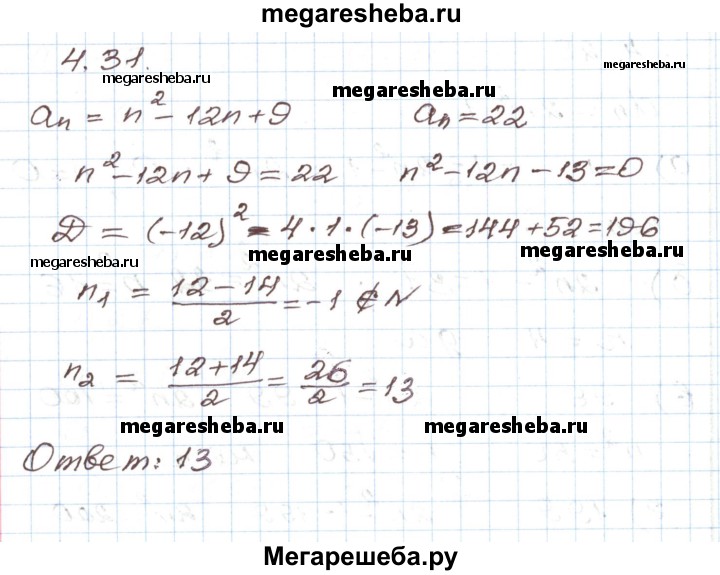 megaresheba.ru
4.31.
megaresheba.ru
megaresheba.ru
megaresheba.ru
aₙ = n² - 12n + 9 aₙ = 22
n² - 12n + 9 = 22 n² - 12n - 13 = 0
D = (-12)² - 4 · 1 · (-13) = 144 + 52 = 196
megaresheba.ru
megaresheba.ru
megaresheba.ru
n₁ = (12 - 14)/2 = -1 ∉ N
n₂ = (12 + 14)/2 = 26/2 = 13
megaresheba.ru
megaresheba.ru
Ответ: 13
Мегарешеба.ру